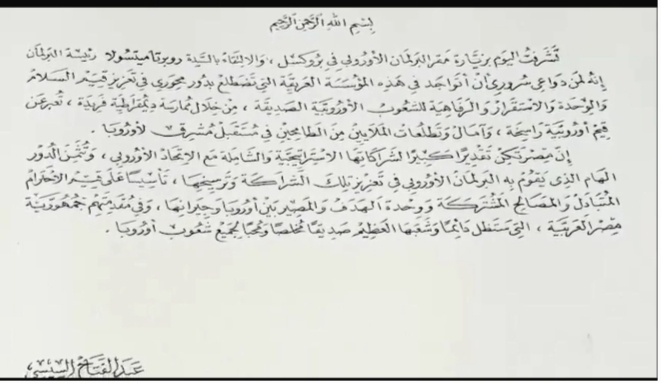 بسم الله الرحمن الرحيم
تشرفت اليوم بزيارة مقر البرلمان الأوروبي في بروكسل، والالتقاء بالسيدة روبرتا ميتسولا رئيسة البرلمان
إنه لمن دواعي سروري أن أتواجد في هذه المؤسسة العريقة التي تضطلع بدور محوري في تعزيز قيم السلام
والوحدة والاستقرار والرفاهية للشعوب الأوروبية الصديقة، من خلال ممارسة ديمقراطية فريدة، تُعبر عن
قيم أوروبية راسخة، وآمال وتطلعات الملايين من الطامحين في مستقبل مشرق لأوروبا.
إن مصر تكن تقديرًا كبيرًا لشراكاتها الاستراتيجية والشاملة مع الاتحاد الأوروبي، وتُثمن الدور
الهام الذي يقوم به البرلمان الأوروبي في تعزيز تلك الشراكة وترسيخها، تأسيسًا على قيم الاحترام
المتبادل والمصالح المشتركة ووحدة الهدف والمصير بين أوروبا وجيرانها، وفي مقدمتهم جمهورية
مصر العربية، التي ستظل دائمًا وشعبها العظيم صديقًا مخلصًا ومحبًا لجميع شعوب أوروبا.
عبد الفتاح السيسي